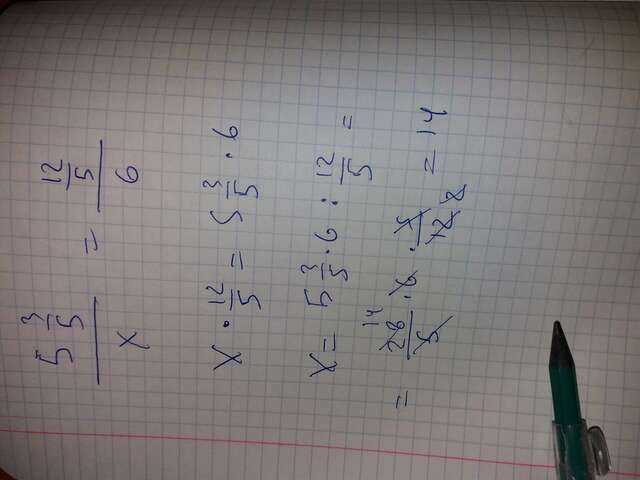 5 3/5 / x = 12/5 / 6
x · 12/5 = 5 3/5 · 6
x = 5 3/5 · 6 : 12/5 =
= 28/5 14 · 6 · 5/12 2 = 14